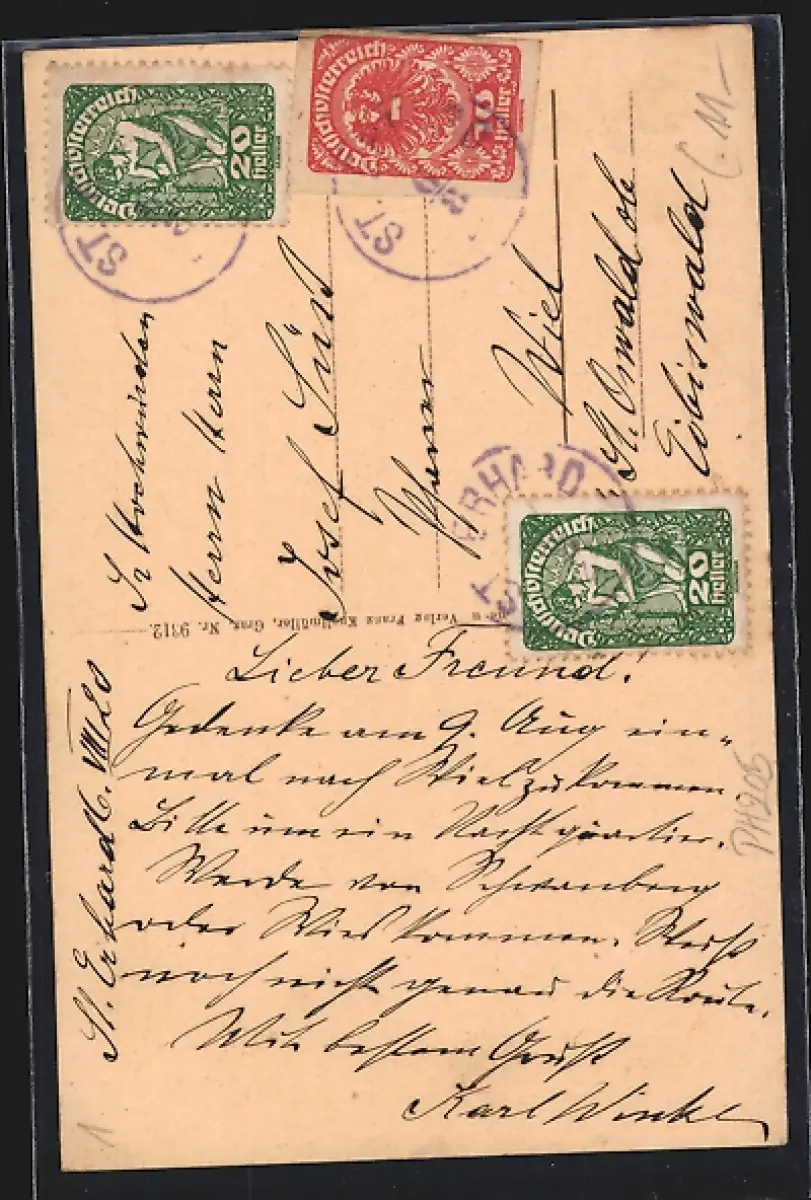 Deutschösterreich
20
heller
Deutschösterreich
10
heller
ST
ST
Sr Hochwürden
Herrn Herrn
Josef Süß
Pfarrer
Wiel
St. Oswald ob
Eibiswald
(M-
ERHARD
ST
Deutschösterreich
20
heller
Verlag Franz Knollmüller, Graz, Nr. 9312.
St. Erhard 6. VIII 20
Lieber Freund!
Gedenke am 9. Aug ein-
mal nach Wiel zu kommen.
Bitte um ein Nachtquartier.
Werde von Schwanberg
oder Wies kommen. Weiß
noch nicht genau die Route.
Mit bestem Gruß
Karl Winkl
PH205
1